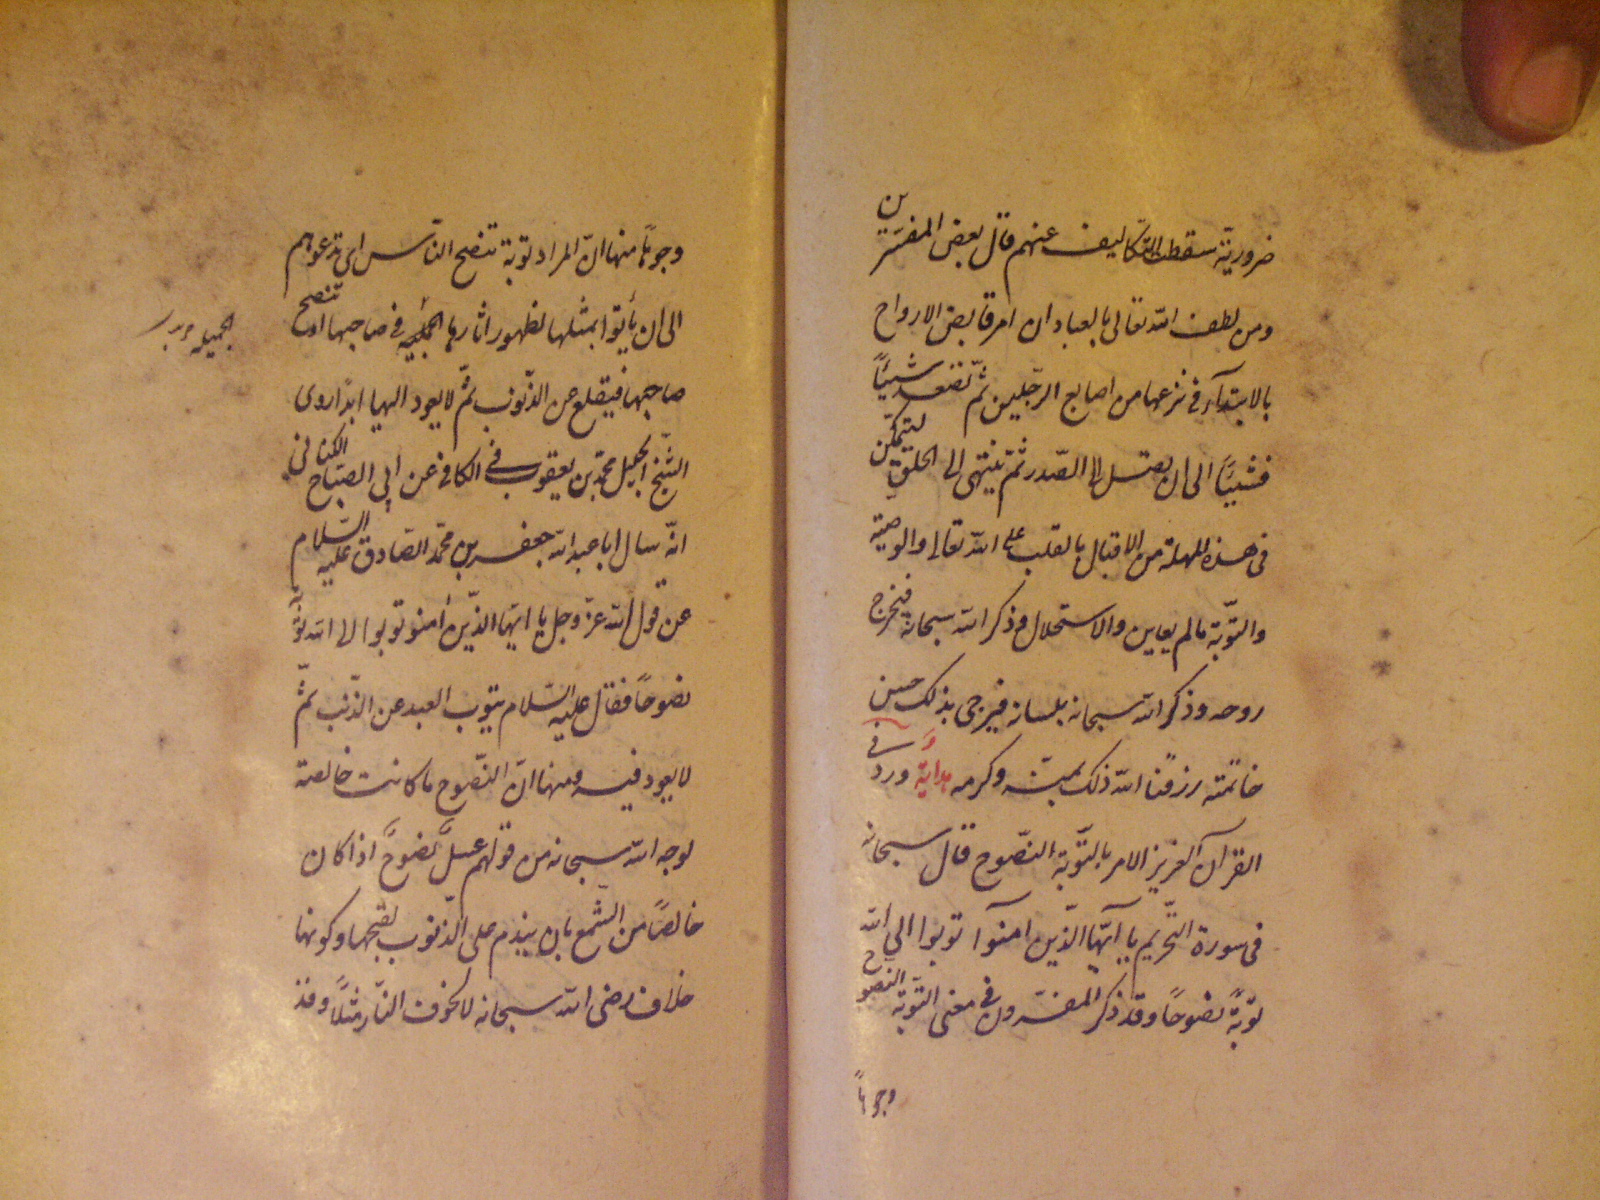 ضروريّة سقطت التكاليف عنهم قال بعض المفسّرين
ومن لطف اللّه تعالى بالعباد ان امر قابض الارواح
بالابتدآء فى نزعها من اصابع الرّجلين ثمّ تصعد شيئاً
فشيئاً الى ان يصل الى الصّدر ثم ينتهى الى الحلق ليتمكّن
فى هذه المهلة من الاقبال بالقلب على اللّه تعالى والوصية
والتوّبة ما لم يعاين والاستحلال وذكر اللّه سبحانه فيخرج
روحه وذكر اللّه سبحانه بلسانه فيرجى بذلك حسن
خاتمته رزقنا اللّه ذلك بمنّه وكرمه هداية ورد فى
القرآن العزيز الامر بالتّوبة النصّوح قال سبحانه
فى سورة التّحريم يا ايّها الذّين امنوآ توبوا الى اللّه
توبةً نصوحًا وقد ذكر المفسّرون فى معنى التّوبة النصوح
وجوهاً
وجوهاً منها انّ المراد توبة تنصح النّاس اى تدعوهم
الى ان يأتوا بمثلها لظهور اثارها الجميله فى صاحبها او تنصح
الجميله
صاحبها فيقلع عن الذّنوب ثمّ لا يعود اليها ابدًا روى
الشّيخ الجليل محمّد بن يعقوب فى الكافى عن ابى الصبّاح الكنانى
انّه سال ابا عبد اللّه جعفر بن محمّد الصّادق عليه السّلام
عن قول اللّه عزّ وجل يا ايّها الذّين امنو توبوا الى اللّه توبةً
نصوحًا فقال عليه السّلام يتوب العبد عن الذّنب ثمّ
لا يعود فيه ومنها انّ النّصوح ما كانت خالصة
لوجه اللّه سبحانه من قولهم عسلٌ نصوحٌ اذا كان
خالصًا من الشّمع بان يندم على الذّنوب لقبحها وكونها
خلاف رضى اللّه سبحانه لا لخوف النّار مثلاً وقد